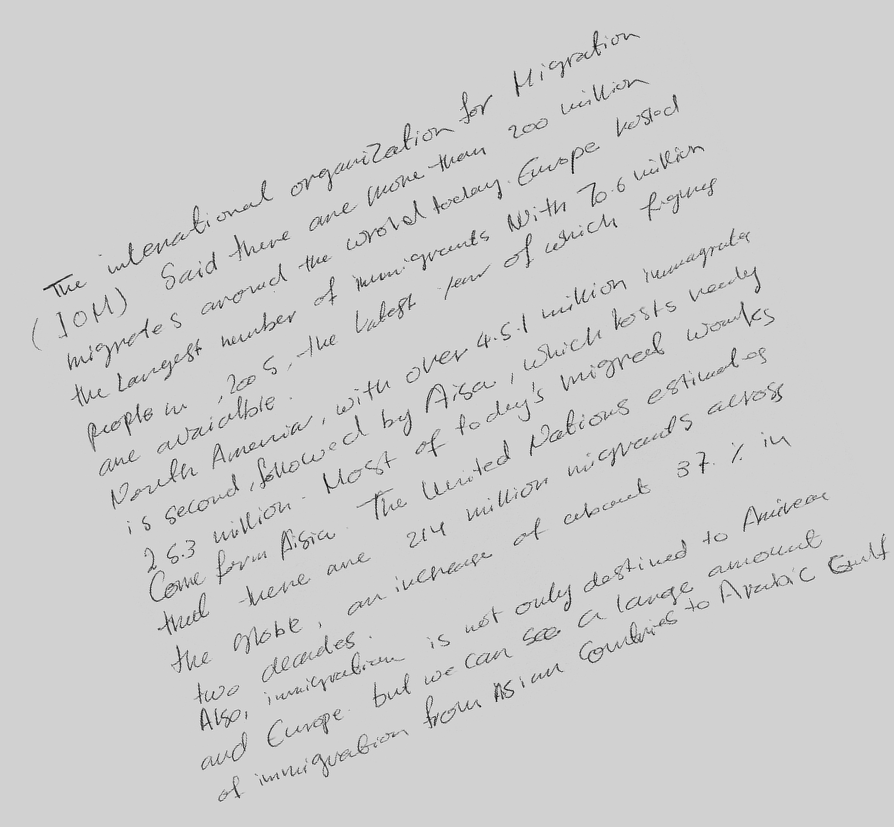 The intenational organization for Migration
(IOM) Said there are more than 200 million
migrates around the wrold today. Europe hosted
the Largest number of immigrants With 70.6 million
people in , 2005, the Latest year of which figures
are avaialble.
North Ameria, with over 4.5.1 million immagrats
is second, followed by Aisa, which hosts nearly
25.3 million. Most of today's migreet works
Come form Aisia. The United Nations estimates
that there are 214 million migrants across
the globe, an increase of about 37. % in
two decades.
Also, immigration is not only destined to American
and Europe. but we can see a large amount
of immigration from Asian Countries to Arabic Gulf